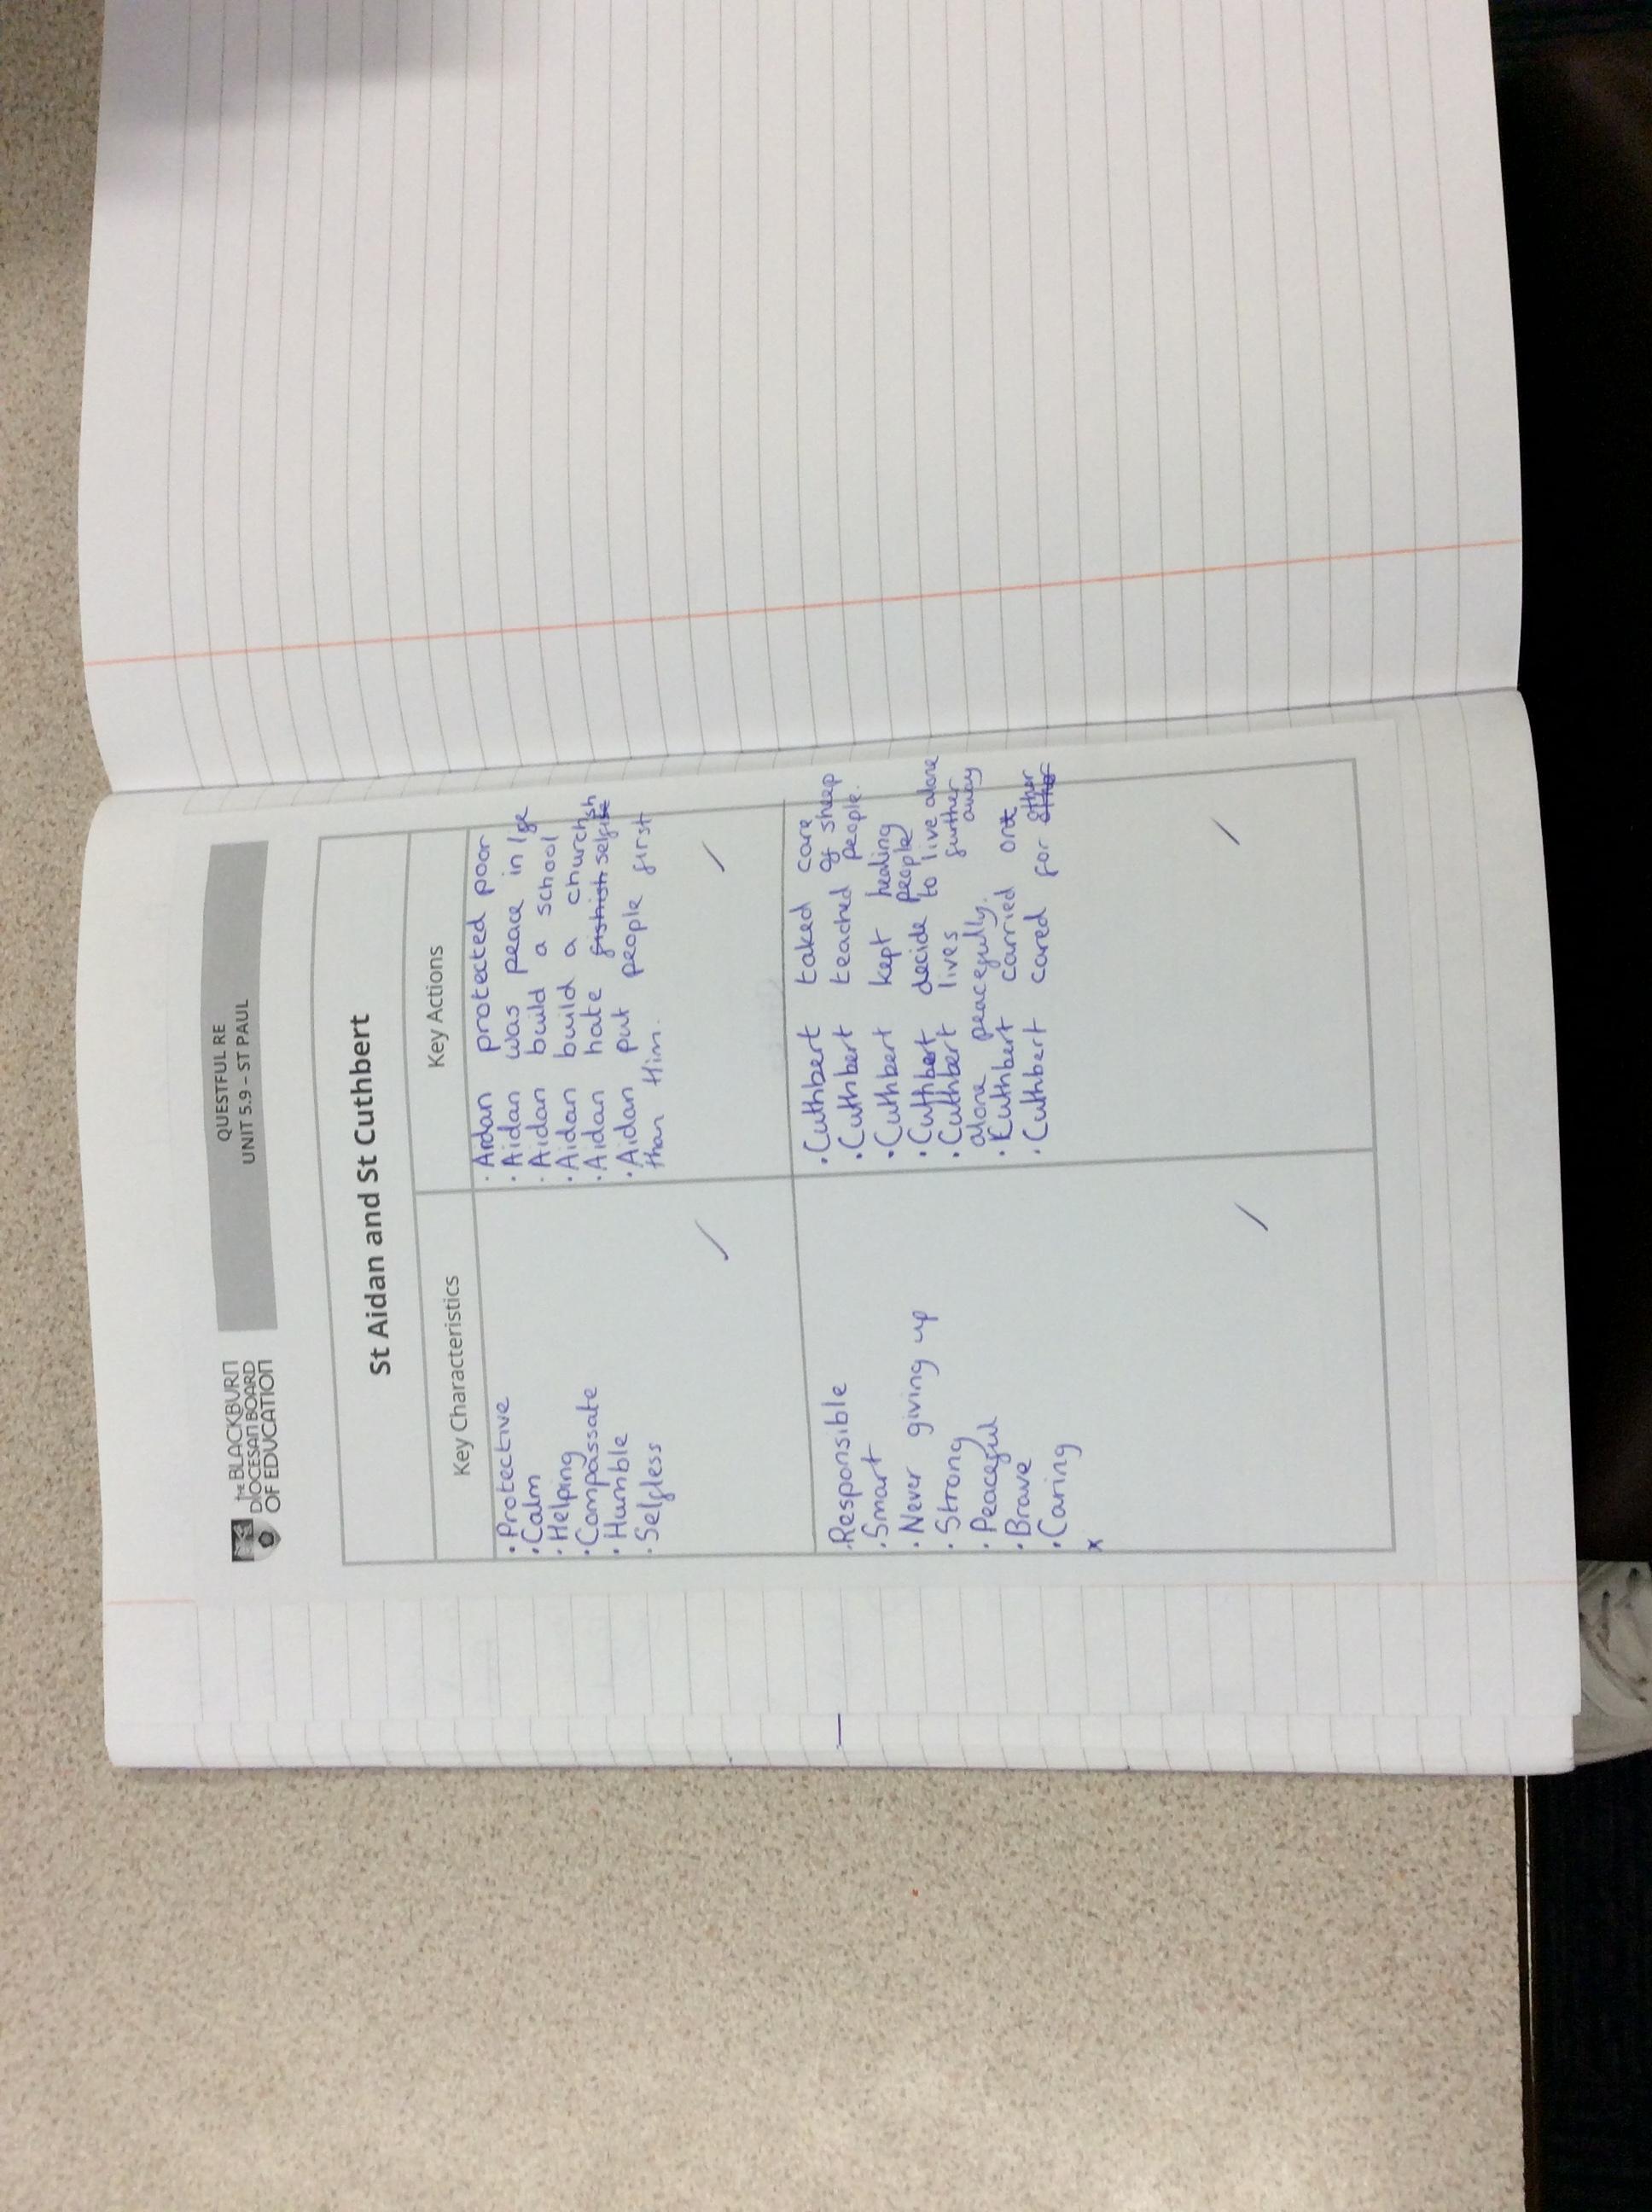 THE BLACKBURN
DIOCESAN BOARD
OF EDUCATION
QUESTFUL RE
UNIT 5.9 – ST PAUL
St Aidan and St Cuthbert
Key Characteristics
Key Actions
• Protective
• Calm
• Helping
• Compassate
• Humble
• Selfless
• Aidan protected poor
• Aidan was peace in life
• Aidan build a school
• Aidan build a church
• Aidan hate selfish
• Aidan put people first
than Him.
• Responsible
• Smart
• Never giving up
• Strong
• Peaceful
• Brave
• Caring
x
• Cuthbert taked care
of sheep
• Cuthbert teached people.
• Cuthbert kept healing
people
• Cuthbert decide to live alone
• Cuthbert lives further
away
alone peacefully.
• Cuthbert carried on
• Cuthbert cared for other